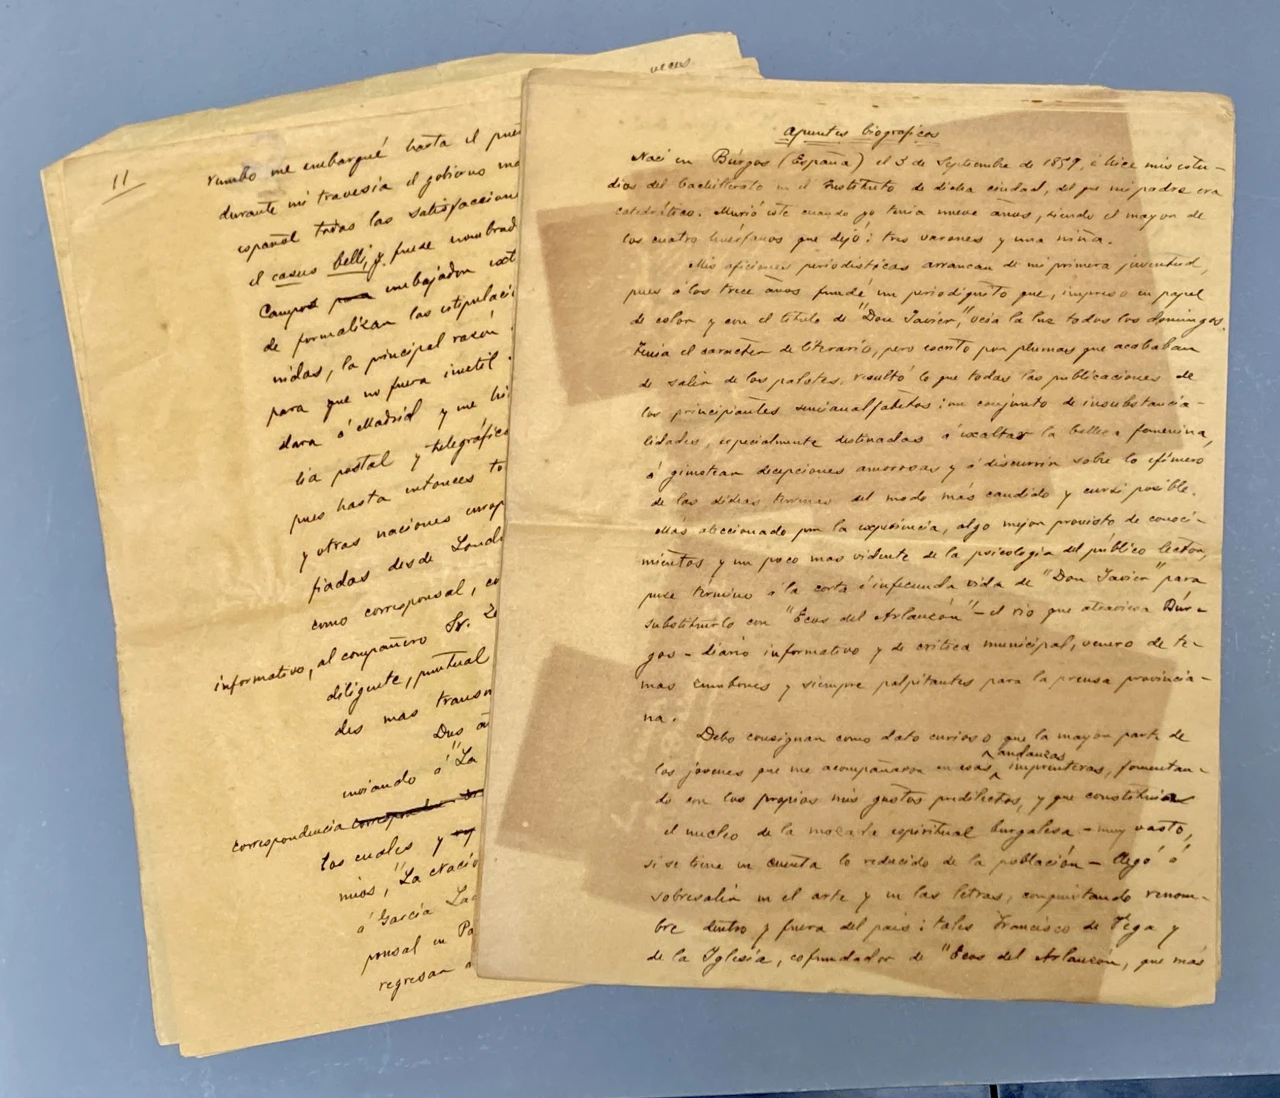 11
rumbo me embarqué hasta el pue
durante mi travesía el gobierno ma
español todas las satisfaccion
el casus belli, y fuese nombrad
Campos para embajador ext
de formalizar las estipulaci
nidas, la principal razón
para que no fuera inutil
dara á Madrid y me hi
cia postal y telegráfic
pues hasta entonces to
y otras naciones europ
fiadas desde Lond
como corresponsal, co
informativo, al compañero Sr.
diligente, puntual
des mas transm
Dus
inviando á "La
correspondencia
los cuales y
mios, "La Nació
á García La
ponsal en Pa
regresar a
veces
Apuntes biograficos
Nací en Búrgos (España) el 3 de Septiembre de 1859, é hice mis estu-
dios del bachillerato en el Instituto de dicha ciudad, del que mi padre era
catedrático. Murió éste cuando yo tenia nueve años, siendo el mayor de
los cuatro huérfanos que dejó: tres varones y una niña.
Mis aficiones periodísticas arrancan de mi primera juventud,
pues á los trece años fundé un periodiquito que, impreso en papel
de color y con el título de "Don Javier," veia la luz todos los domingos.
Tenia el carácter de literario, pero escrito por plumas que acababan
de salir de los palotes, resultó lo que todas las publicaciones de
los principiantes semianalfabetos: un conjunto de insubstancia-
lidades, especialmente destinadas á exaltar la belleza femenina,
á gimotear decepciones amorosas y á discurrir sobre lo efímero
de las dichas terrenas del modo más candido y cursi posible.
Más aleccionado por la experiencia, algo mejor provisto de conoci-
mientos y un poco mas vidente de la psicologia del público lector,
puse termino á la corta é infecunda vida de "Don Javier" para
substituirlo con "Ecos del Arlanzón" - el rio que atraviesa Búr-
gos - diario informativo y de crítica municipal, venero de te-
mas zumbones y siempre palpitantes para la prensa provincia-
na.
Debo consignar como dato curioso que la mayor parte de
los jóvenes que me acompañaron en esas andanzas imprenteras, fomentan-
do con los propios mis gustos predilectos, y que constituian
el nucleo de la mocada espiritual burgalesa - muy vasto,
si se tiene en cuenta lo reducido de la población - llegó á
sobresalir en el arte y en las letras, conquistando renom-
bre dentro y fuera del pais: tales Francisco de Vega y
de la Iglesia, cofundador de "Ecos del Arlanzón, que más